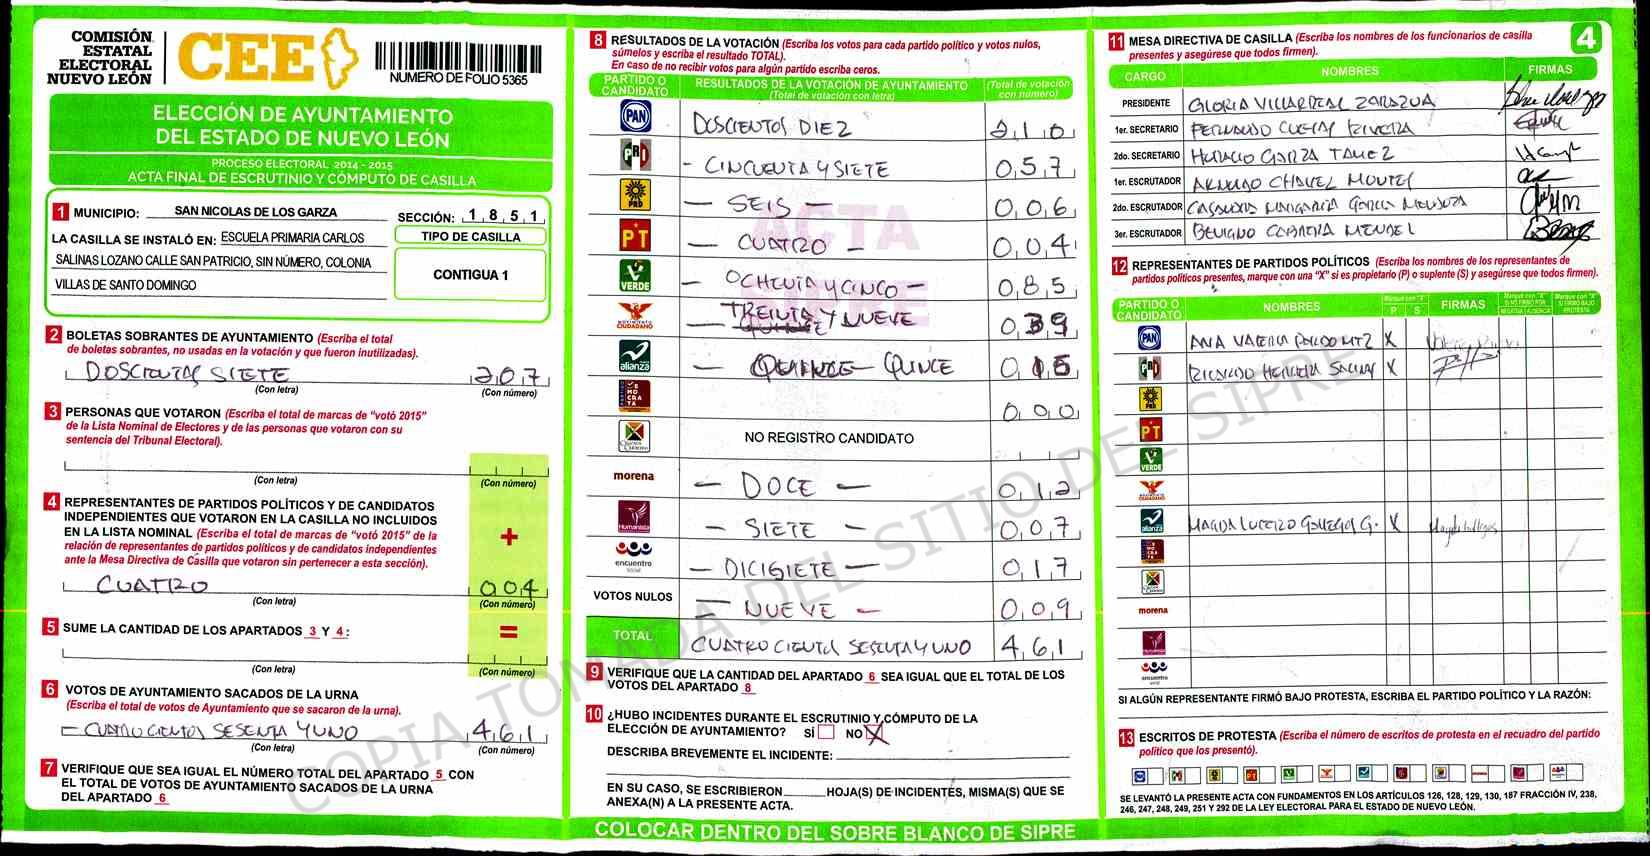 COMISIÓN
ESTATAL
ELECTORAL
NUEVO LEÓN
CEE
NUMERO DE FOLIO 5365
ELECCIÓN DE AYUNTAMIENTO
DEL ESTADO DE NUEVO LEÓN
PROCESO ELECTORAL 2014 - 2015
ACTA FINAL DE ESCRUTINIO Y CÓMPUTO DE CASILLA
1 MUNICIPIO: SAN NICOLAS DE LOS GARZA
SECCIÓN: 1 8 5 1
LA CASILLA SE INSTALÓ EN: ESCUELA PRIMARIA CARLOS
SALINAS LOZANO CALLE SAN PATRICIO, SIN NÚMERO, COLONIA
VILLAS DE SANTO DOMINGO
TIPO DE CASILLA
CONTIGUA 1
2 BOLETAS SOBRANTES DE AYUNTAMIENTO (Escriba el total
de boletas sobrantes, no usadas en la votación y que fueron inutilizadas).
DOSCIENTAS SIETE 2 0 7
(Con letra) (Con número)
3 PERSONAS QUE VOTARON (Escriba el total de marcas de "votó 2015"
de la Lista Nominal de Electores y de las personas que votaron con su
sentencia del Tribunal Electoral).
(Con letra) (Con número)
4 REPRESENTANTES DE PARTIDOS POLÍTICOS Y DE CANDIDATOS
INDEPENDIENTES QUE VOTARON EN LA CASILLA NO INCLUIDOS
EN LA LISTA NOMINAL (Escriba el total de marcas de "votó 2015" de la
relación de representantes de partidos políticos y de candidatos independientes
ante la Mesa Directiva de Casilla que votaron sin pertenecer a esta sección).
+
CUATRO 0 0 4
(Con letra) (Con número)
5 SUME LA CANTIDAD DE LOS APARTADOS 3 Y 4:
=
(Con letra) (Con número)
6 VOTOS DE AYUNTAMIENTO SACADOS DE LA URNA
(Escriba el total de votos de Ayuntamiento que se sacaron de la urna).
- CUATROCIENTOS SESENTA Y UNO 4 6 1
(Con letra) (Con número)
7 VERIFIQUE QUE SEA IGUAL EL NÚMERO TOTAL DEL APARTADO 5 CON
EL TOTAL DE VOTOS DE AYUNTAMIENTO SACADOS DE LA URNA
DEL APARTADO 6
8 RESULTADOS DE LA VOTACIÓN (Escriba los votos para cada partido político y votos nulos,
súmelos y escriba el resultado TOTAL).
En caso de no recibir votos para algún partido escriba ceros.
PARTIDO O CANDIDATO
RESULTADOS DE LA VOTACIÓN DE AYUNTAMIENTO
(Total de votación con letra)
(Total de votación con número)
PAN DOSCIENTOS DIEZ 2 1 0
PRI - CINCUENTA Y SIETE 0 5 7
PRD - SEIS - 0 0 6
PT - CUATRO - 0 0 4
VERDE - OCHENTA Y CINCO - 0 8 5
MOVIMIENTO CIUDADANO TREINTA Y NUEVE 0 3 9
alianza - QUINCE 0 1 5
DEMOCRATA 0 0 0
NO REGISTRO CANDIDATO
morena - DOCE - 0 1 2
Humanista - SIETE - 0 0 7
encuentro social - DICISIETE - 0 1 7
VOTOS NULOS - NUEVE - 0 0 9
TOTAL CUATRO CIENTA SESENTA Y UNO 4 6 1
ACTA
SIPRE
9 VERIFIQUE QUE LA CANTIDAD DEL APARTADO 6 SEA IGUAL QUE EL TOTAL DE LOS
VOTOS DEL APARTADO 8
10 ¿HUBO INCIDENTES DURANTE EL ESCRUTINIO Y CÓMPUTO DE LA
ELECCIÓN DE AYUNTAMIENTO? SÍ NO X
DESCRIBA BREVEMENTE EL INCIDENTE:
EN SU CASO, SE ESCRIBIERON HOJA(S) DE INCIDENTES, MISMA(S) QUE SE
ANEXA(N) A LA PRESENTE ACTA.
COLOCAR DENTRO DEL SOBRE BLANCO DE SIPRE
11 MESA DIRECTIVA DE CASILLA (Escriba los nombres de los funcionarios de casilla
presentes y asegúrese que todos firmen).
4
CARGO NOMBRES FIRMAS
PRESIDENTE GLORIA VILLARREAL ZARAZUA
1er. SECRETARIO FERNANDO CUEVAS RIVERA
2do. SECRETARIO HORACIO GARZA TAMEZ
1er. ESCRUTADOR ARNULFO CHAVEZ MONTES
2do. ESCRUTADOR MARGARITA GARCIA MENDOZA
3er. ESCRUTADOR BENIGNO CABRERA MENDEL
12 REPRESENTANTES DE PARTIDOS POLÍTICOS (Escriba los nombres de los representantes de
partidos políticos presentes, marque con una "X" si es propietario (P) o suplente (S) y asegúrese que todos firmen).
PARTIDO O CANDIDATO
NOMBRES
Marque con "X"
P S
FIRMAS
Marque con "X" SI NO FIRMO POR
NEGATIVA AUSENCIA
Marque con "X" SI FIRMO BAJO PROTESTA
PAN ANA VALERIA MTZ X
PRI RICARDO HERRERA SALINAS X
PRD
PT
VERDE
MOVIMIENTO CIUDADANO
alianza MAGDA LUCERO GALLEGOS G. X Magda Gallegos
DEMOCRATA
morena
Humanista
encuentro social
SI ALGÚN REPRESENTANTE FIRMÓ BAJO PROTESTA, ESCRIBA EL PARTIDO POLÍTICO Y LA RAZÓN:
13 ESCRITOS DE PROTESTA (Escriba el número de escritos de protesta en el recuadro del partido
político que los presentó).
SE LEVANTÓ LA PRESENTE ACTA CON FUNDAMENTOS EN LOS ARTÍCULOS 126, 128, 129, 130, 187 FRACCIÓN IV, 238,
246, 247, 248, 249, 251 Y 292 DE LA LEY ELECTORAL PARA EL ESTADO DE NUEVO LEÓN.
COPIA TOMADA DEL SITIO DEL SIPRE